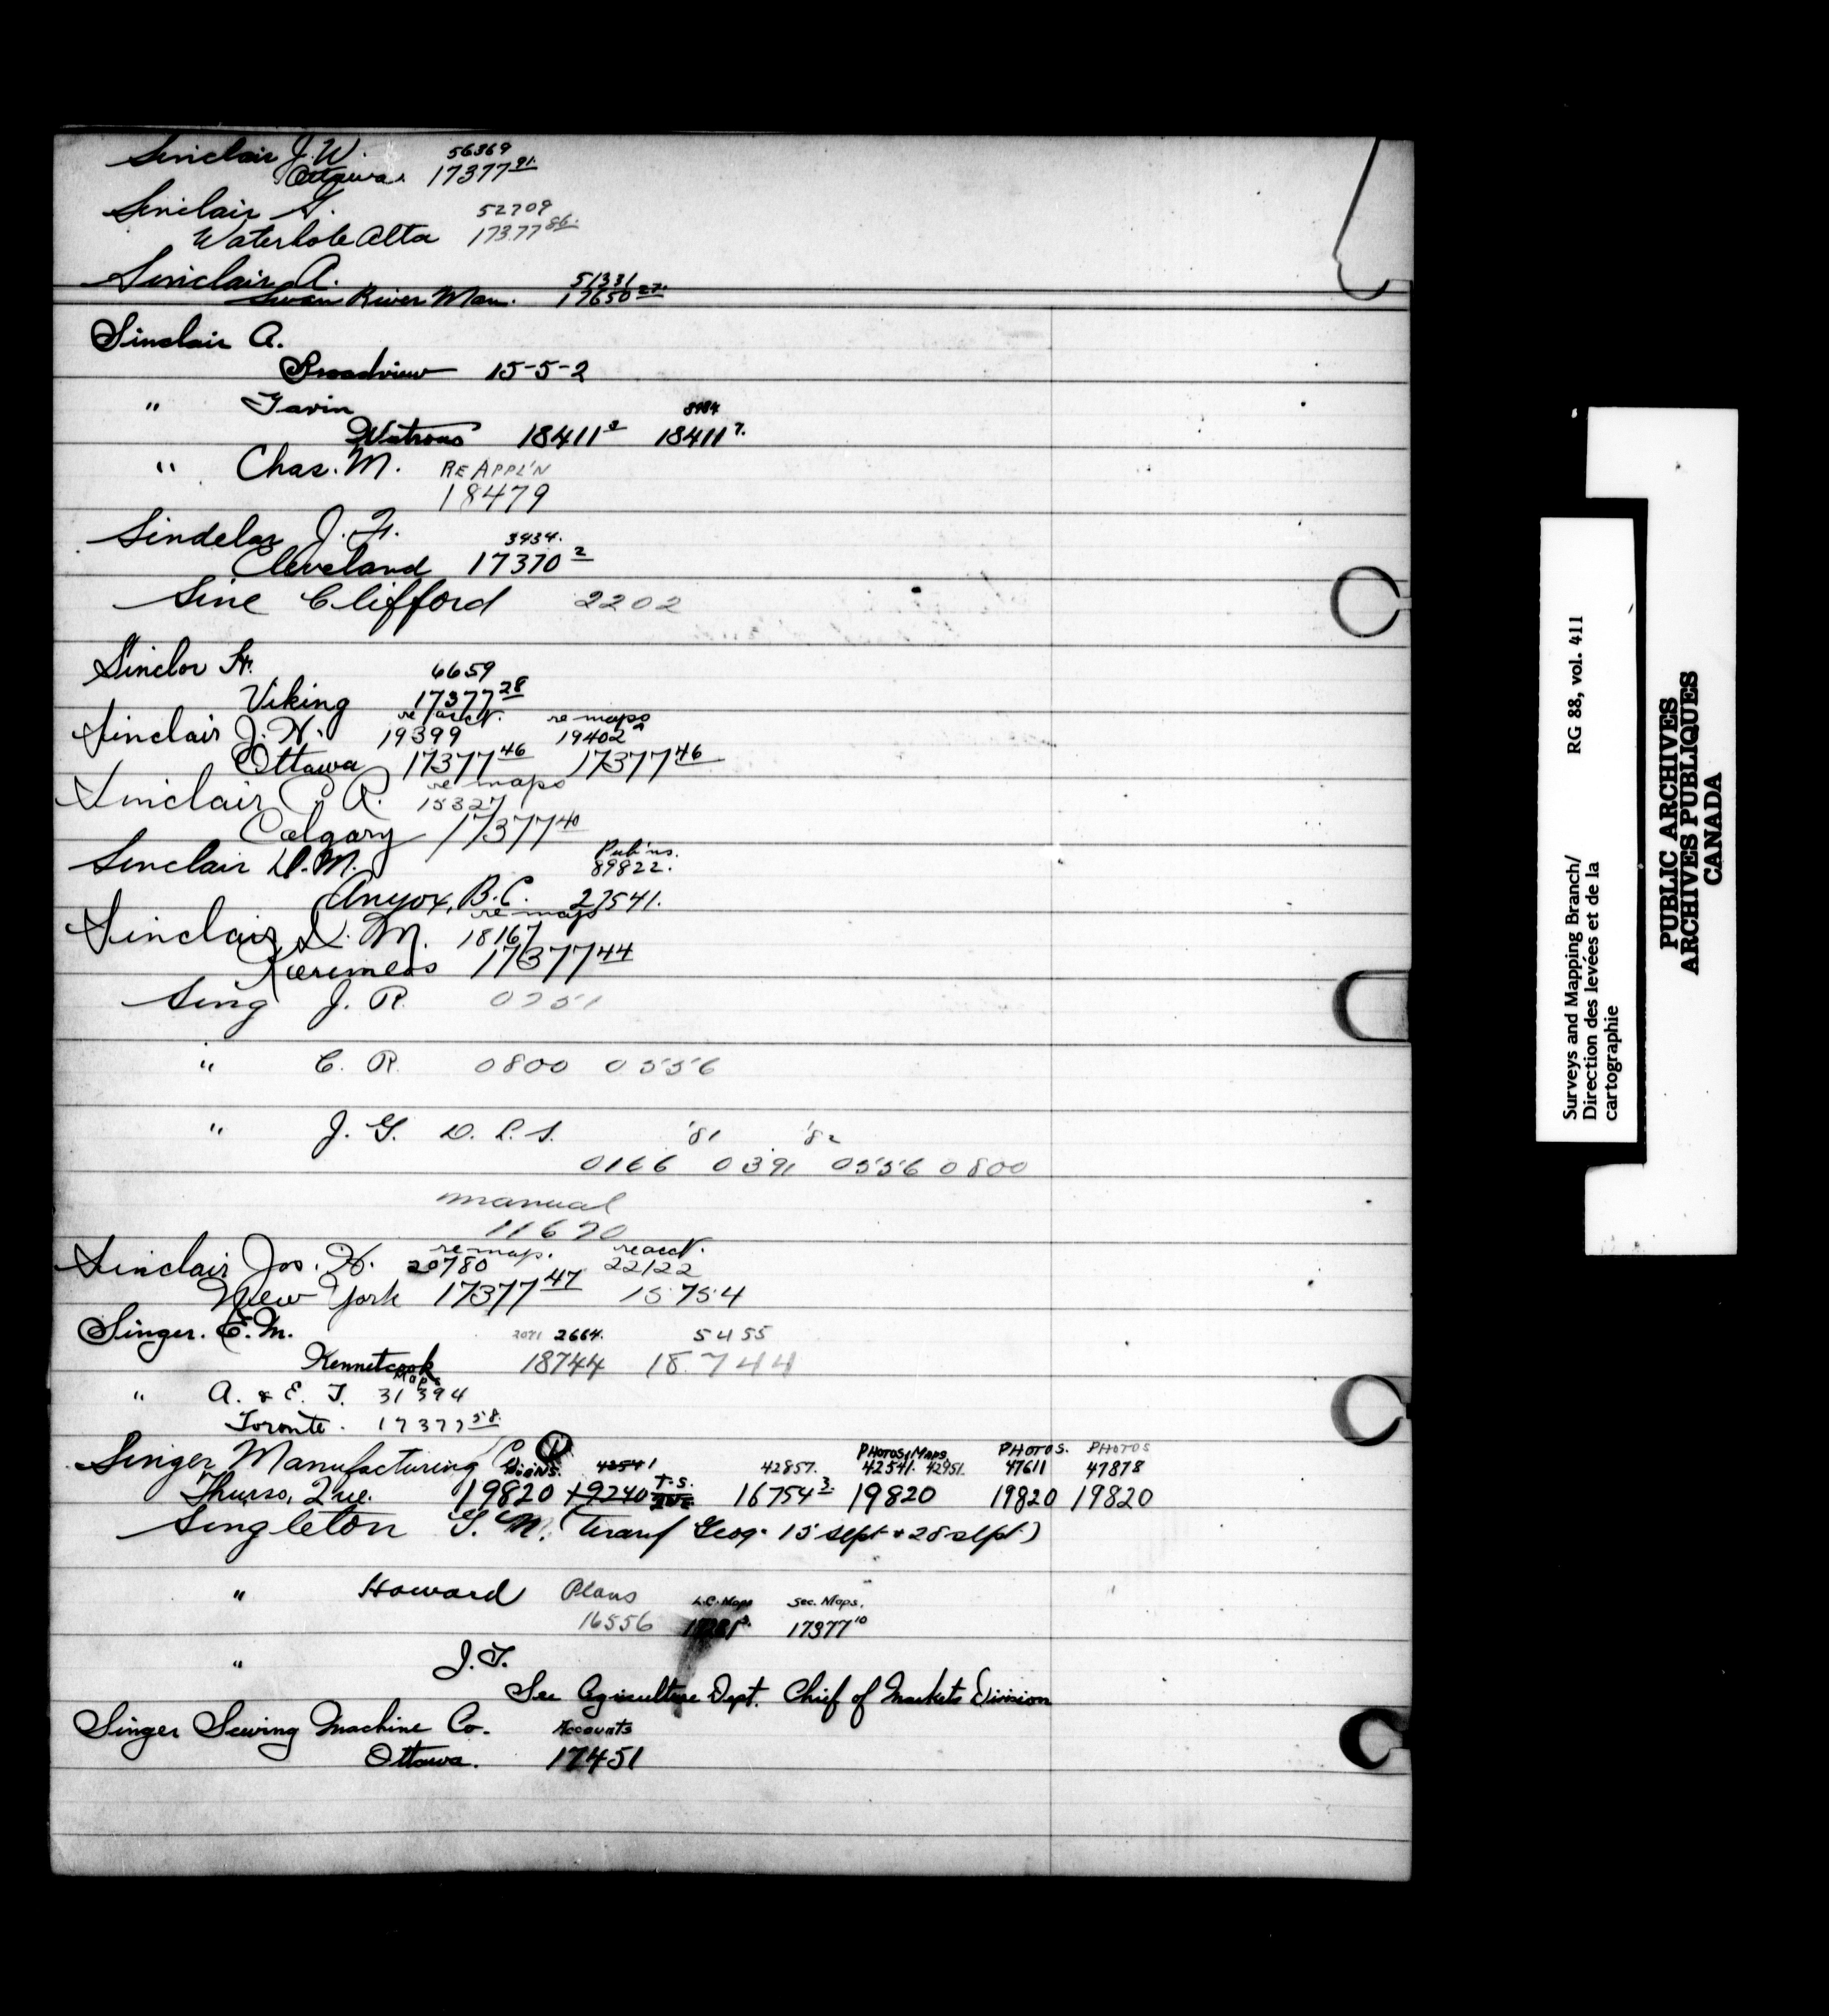 Sinclair J. W. 56369
Ottawa 17377 91.
Sinclair G. 52709
Waterhole Alta 17377 86.
Sinclair A. 51331
Swan River Man. 17650 27.
Sinclair A.
Broadview 15-5-2
" Gavin 8984
Watrous 18411 2 18411 7.
" Chas. M. RE APPL'N
18479
Sindelar J. F. 3434.
Cleveland 17370 2
Sine Clifford 2202
Sinclor H. 6659
Viking 17377 28
re acct. re maps
Sinclair J. H. 19399 19402
Ottawa 17377 46 17377 46
re maps
Sinclair C. R. 15327
Calgary 17377 40
Pub'ns.
Sinclair D. M. 89822.
Anyox, B.C. 27541.
re maps
Sinclair D. M. 18167
Keremeos 17377 44
Sing J. R. 0251
" C. R. 0800 0556
" J. G. D. L. S. '81 '82
0166 0391 0556 0800
manual
11670
re map. re acct.
Sinclair Jos. H. 20780 22122
New York 17377 47 15754
Singer. E. M. 2071 2664. 5455
Kennetcook 18744 18744
Maps
" A. & E. T. 31394
Toronto. 17377 58.
PHOTOS, Maps. PHOTOS. PHOTOS
Singer Manufacturing Co. 42541 42857. 42541. 42951. 47611 47878
Thurso, Que. 19820 19240 T.S. 16754 3. 19820 19820 19820
Singleton G. M. (Transf Geog. 15 sept & 28 sept)
" Howard Plans L.C. Maps Sec. Maps.
16556 17377 10
" J. T.
See Agriculture Dept. Chief of Markets Division
Singer Sewing Machine Co. Accounts
Ottawa. 17451
Surveys and Mapping Branch/ RG 88, vol. 411
Direction des levées et de la
cartographie
PUBLIC ARCHIVES
ARCHIVES PUBLIQUES
CANADA